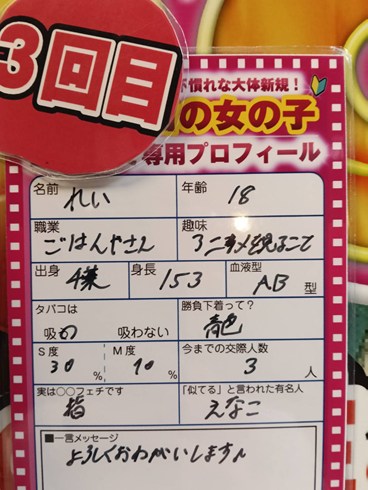 3回目
不慣れな大体新規！
の女の子
専用プロフィール
名前 れい 年齢 18
職業 趣味
ごはんやさん アニメを観ること
出身 身長 153 血液型 AB 型
タバコは 勝負下着って？
吸う 吸わない 青色
S度 M度 今までの交際人数
30 % 70 % 3 人
実は○○フェチです 「似てる」と言われた有名人
指 えなこ
■一言メッセージ
よろしくおねがいします